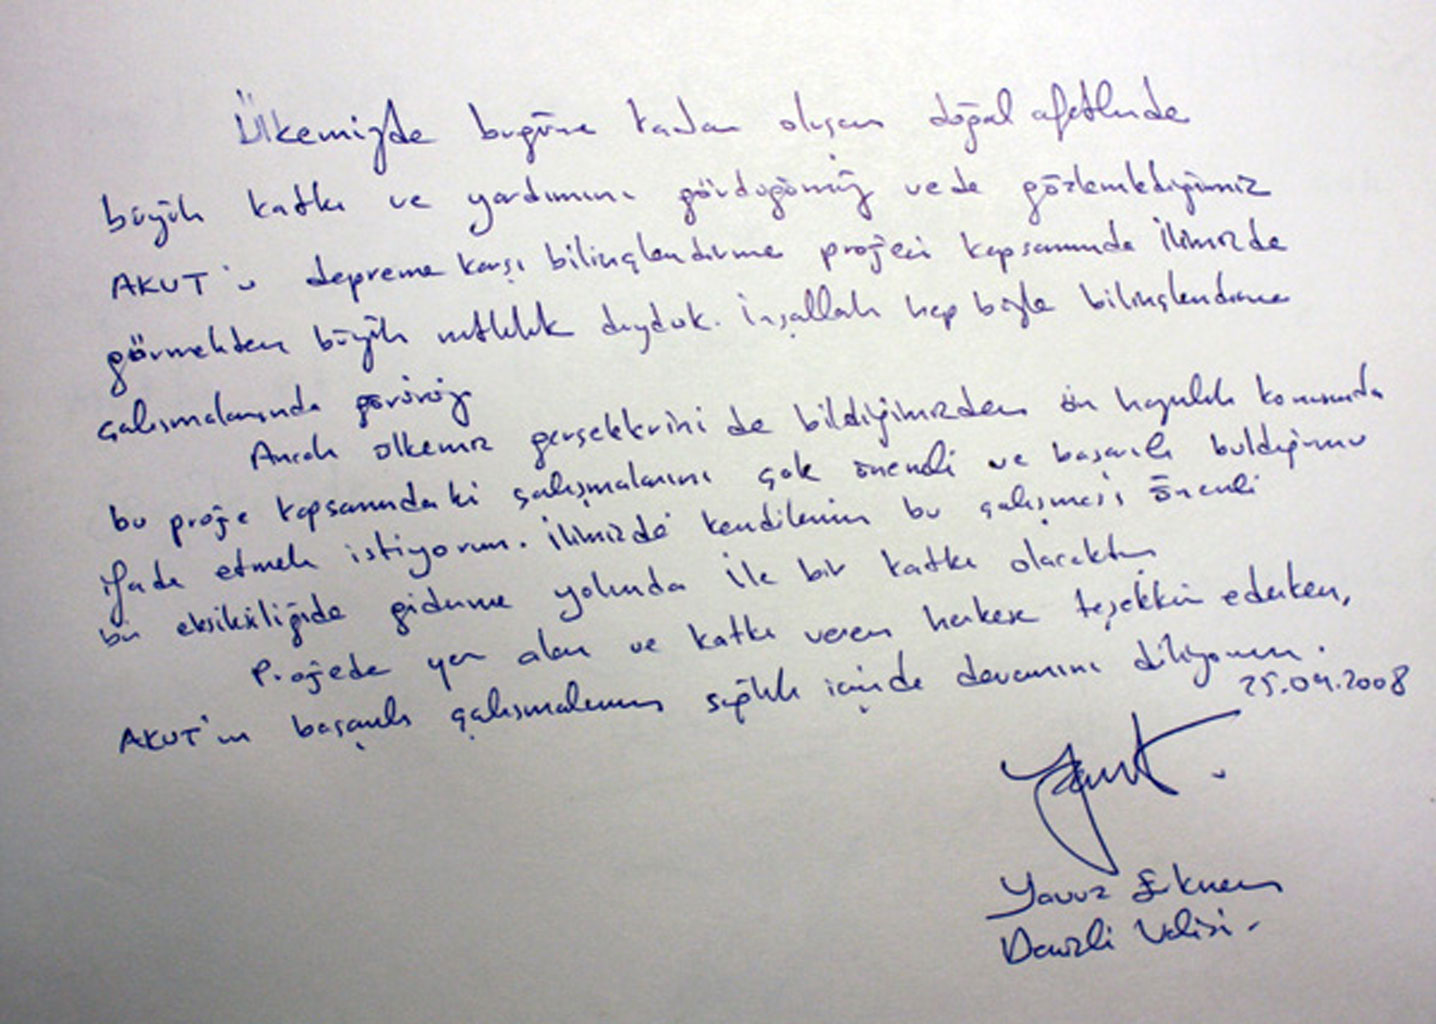 Ülkemizde bugüne kadar oluşan doğal afetlerde
büyük katkı ve yardımını gördüğümüz ve de gözlemlediğimiz
AKUT'u depreme karşı bilinçlendirme projesi kapsamında ilimizde
görmekten büyük mutluluk duyduk. İnşallah hep böyle bilinçlendirme
çalışmalarında görürüz
Ancak ülkemiz gerçeklerini de bildiğimizden ön hazırlık konusunda
bu proje kapsamındaki çalışmalarını çok önemli ve başarılı bulduğumu
ifade etmek istiyorum. İlimizde kendilerinin bu çalışması önemli
bir eksikliğide giderme yolunda ile bir katkı olacaktır
Projede yer alan ve katkı veren herkese teşekkür ederken,
AKUT'un başarılı çalışmalarının sağlık içinde devamını diliyorum.
25.04.2008
Yavuz Erkmen
Denizli Valisi